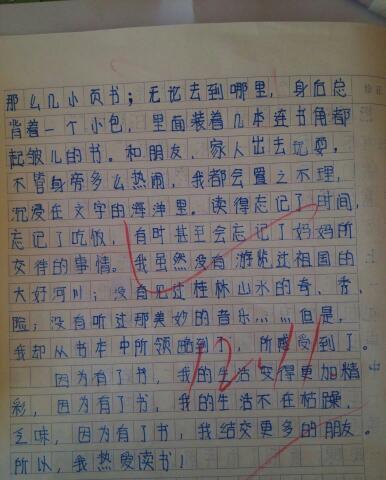 那么几小页书；无论去到哪里，身后总
背着一个小包，里面装着几本连书角都
起皱儿的书。和朋友、家人出去玩耍，
不管身旁多么热闹，我都会置之不理，
沉浸在文字的海洋里。读得忘记了时间，
忘记了吃饭，有时甚至会忘记了妈妈所
交待的事情。我虽然没有游览过祖国的
大好河川；没有见过桂林山水的奇、秀、
险；没有听过那美妙的音乐……但是，
我却从书本中所领略到了，所感受到了。
12.11
因为有了书，我的生活变得更加精
彩，因为有了书，我的生活不在枯躁、
乏味，因为有了书，我结交更多的朋友。
所以，我热爱读书！